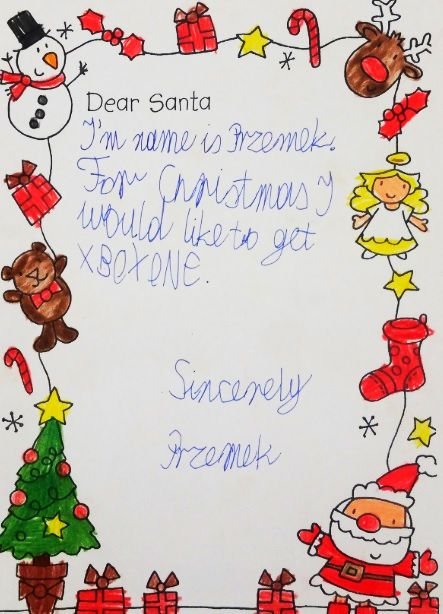 Dear Santa
I'm name is Przemek.
For Christmas I
would like to get
XBOXONE.
Sincerely
Przemek